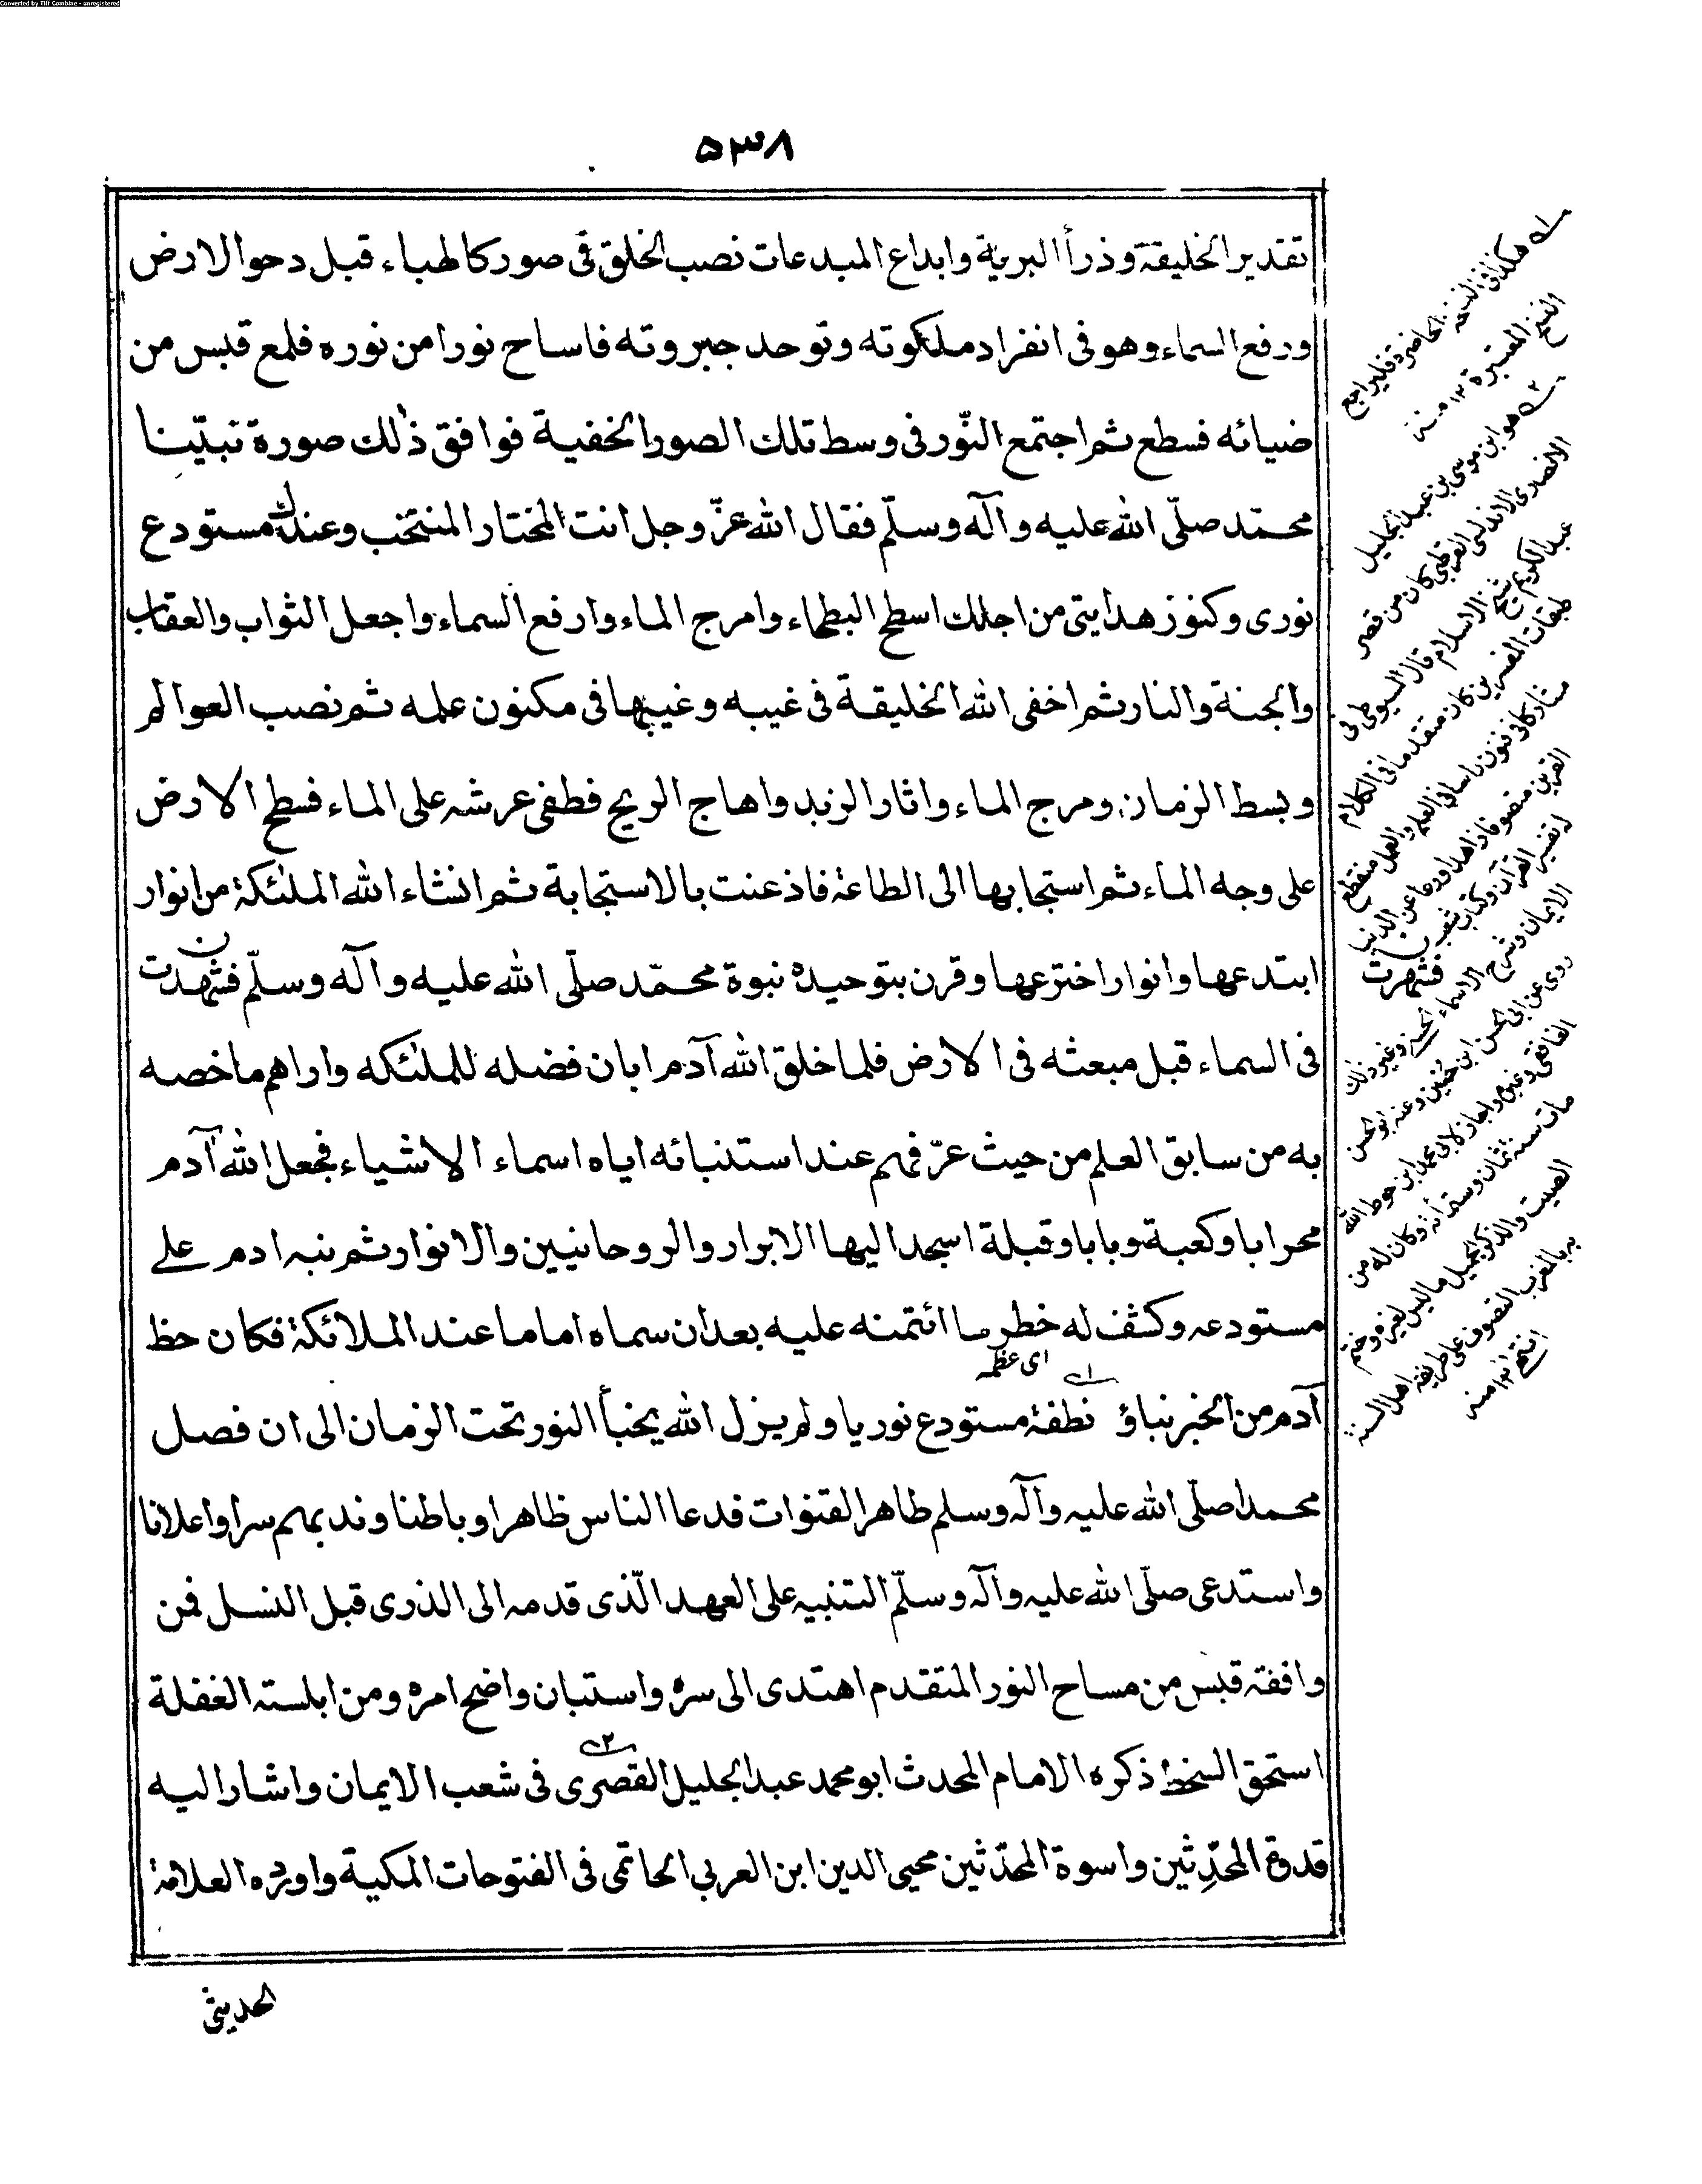 Converted by Tiff Combine - unregistered
۵۳۸
تقدير الخليقة وذرأ البرية وابداع المبدعات نصب الخلق فى صور كالهباء قبل دحو الارض
ورفع السماء وهو فى انفراد ملكوته وتوحد جبروته فاساح نورا من نوره فلمع قبس من
ضيائه فسطع ثم اجتمع النّور فى وسط تلك الصور الخفية فوافق ذٰلك صورة نبيّنا
محمّد صلّى الله عليه وآله وسلّم فقال الله عزّ وجل انت المختار المنتخب وعندك مستودع
نورى وكنوز هدايتى من اجلك اسطح البطحاء وامرج الماء وارفع السماء واجعل الثواب والعقاب
والجنة والنار ثم اخفى الله الخليقة فى غيبه وغيبها فى مكنون علمه ثم نصب العوالم
وبسط الزمان ومرج الماء واثار الزبد واهاج الريح فطفى عرشه على الماء فسطح الارض
على وجه الماء ثم استجابها الى الطاعة فاذعنت بالاستجابة ثم انشاء الله الملٰئكة من انوار
ابتدعها وانوار اخترعها وقرن بتوحيده نبوة محمّد صلّى الله عليه وآله وسلّم فشهدت
فى السماء قبل مبعثه فى الارض فلما خلق الله آدم ابان فضله للملٰئكه واراهم ما خصه
به من سابق العلم من حيث عرّفهم عند استنبائه اياه اسماء الاشياء فجعل الله آدم
محرابا وكعبة وبابا وقبلة اسجد اليها الابرار والروحانيين والانوار ثم نبه ادم على
مستودعه وكشف له خطر ما ائتمنه عليه بعد ان سماه اماما عند الملائكة فكان حظ
اى عظمه
آدم من الخبر بناؤ نطفة مستودع نوريا ولم يزل الله يخبأ النور تحت الزمان الى ان فصل
محمدا صلّى الله عليه وآله وسلم طاهر القنوات فدعا الناس ظاهرا وباطنا وندبهم سرا واعلانا
واستدعى صلّى الله عليه وآله وسلّم التنبيه على العهد الّذى قدمه الى الذرى قبل النسل فمن
وافقه قبس من مساح النور المتقدم اهتدى الى سره واستبان واضح امره ومن ابلسته الغفلة
استحق السخط ذكره الامام المحدث ابو محمد عبد الجليل القصرى فى شعب الايمان واشار اليه
قدوة المحدّثين واسوة المحدّثين محيى الدين ابن العربي الحاتمى فى الفتوحات المكية واورده العلامة
الحديثى
۱ هكذا فى النسخة الحاضرة فليراجع
النسخ المعتبرة ۱۲ منه
۲ هو ابن موسى بن عبد الجليل
الانصارى الاندلسى القرطبى كان من قصر
عبد الكريم شيخ الاسلام قال السيوطى فى
طبقات المفسرين كان متقدما فى الكلام
مشاركا فى فنون راسا فى العلم والعمل منقطع
القرين متصوفا زاهدا ورعا عن الدنيا
له تفسير القرآن وكتاب شعب
الايمان وشرح الاسماء الحسنى وغير ذلك
فشهرت
روى عن ابى الحسن ابن حنين وعنه ابو الحسن
الغافقى وغيره واجاز لابى محمد ابن حوط الله
مات سنة ثمان وستمائة وكان له من
الصيت والذكر الجميل ما ليس لغيره وختم
به بالمغرب التصوف على طريقة اهل السنة
انتهى ۱۲ منه